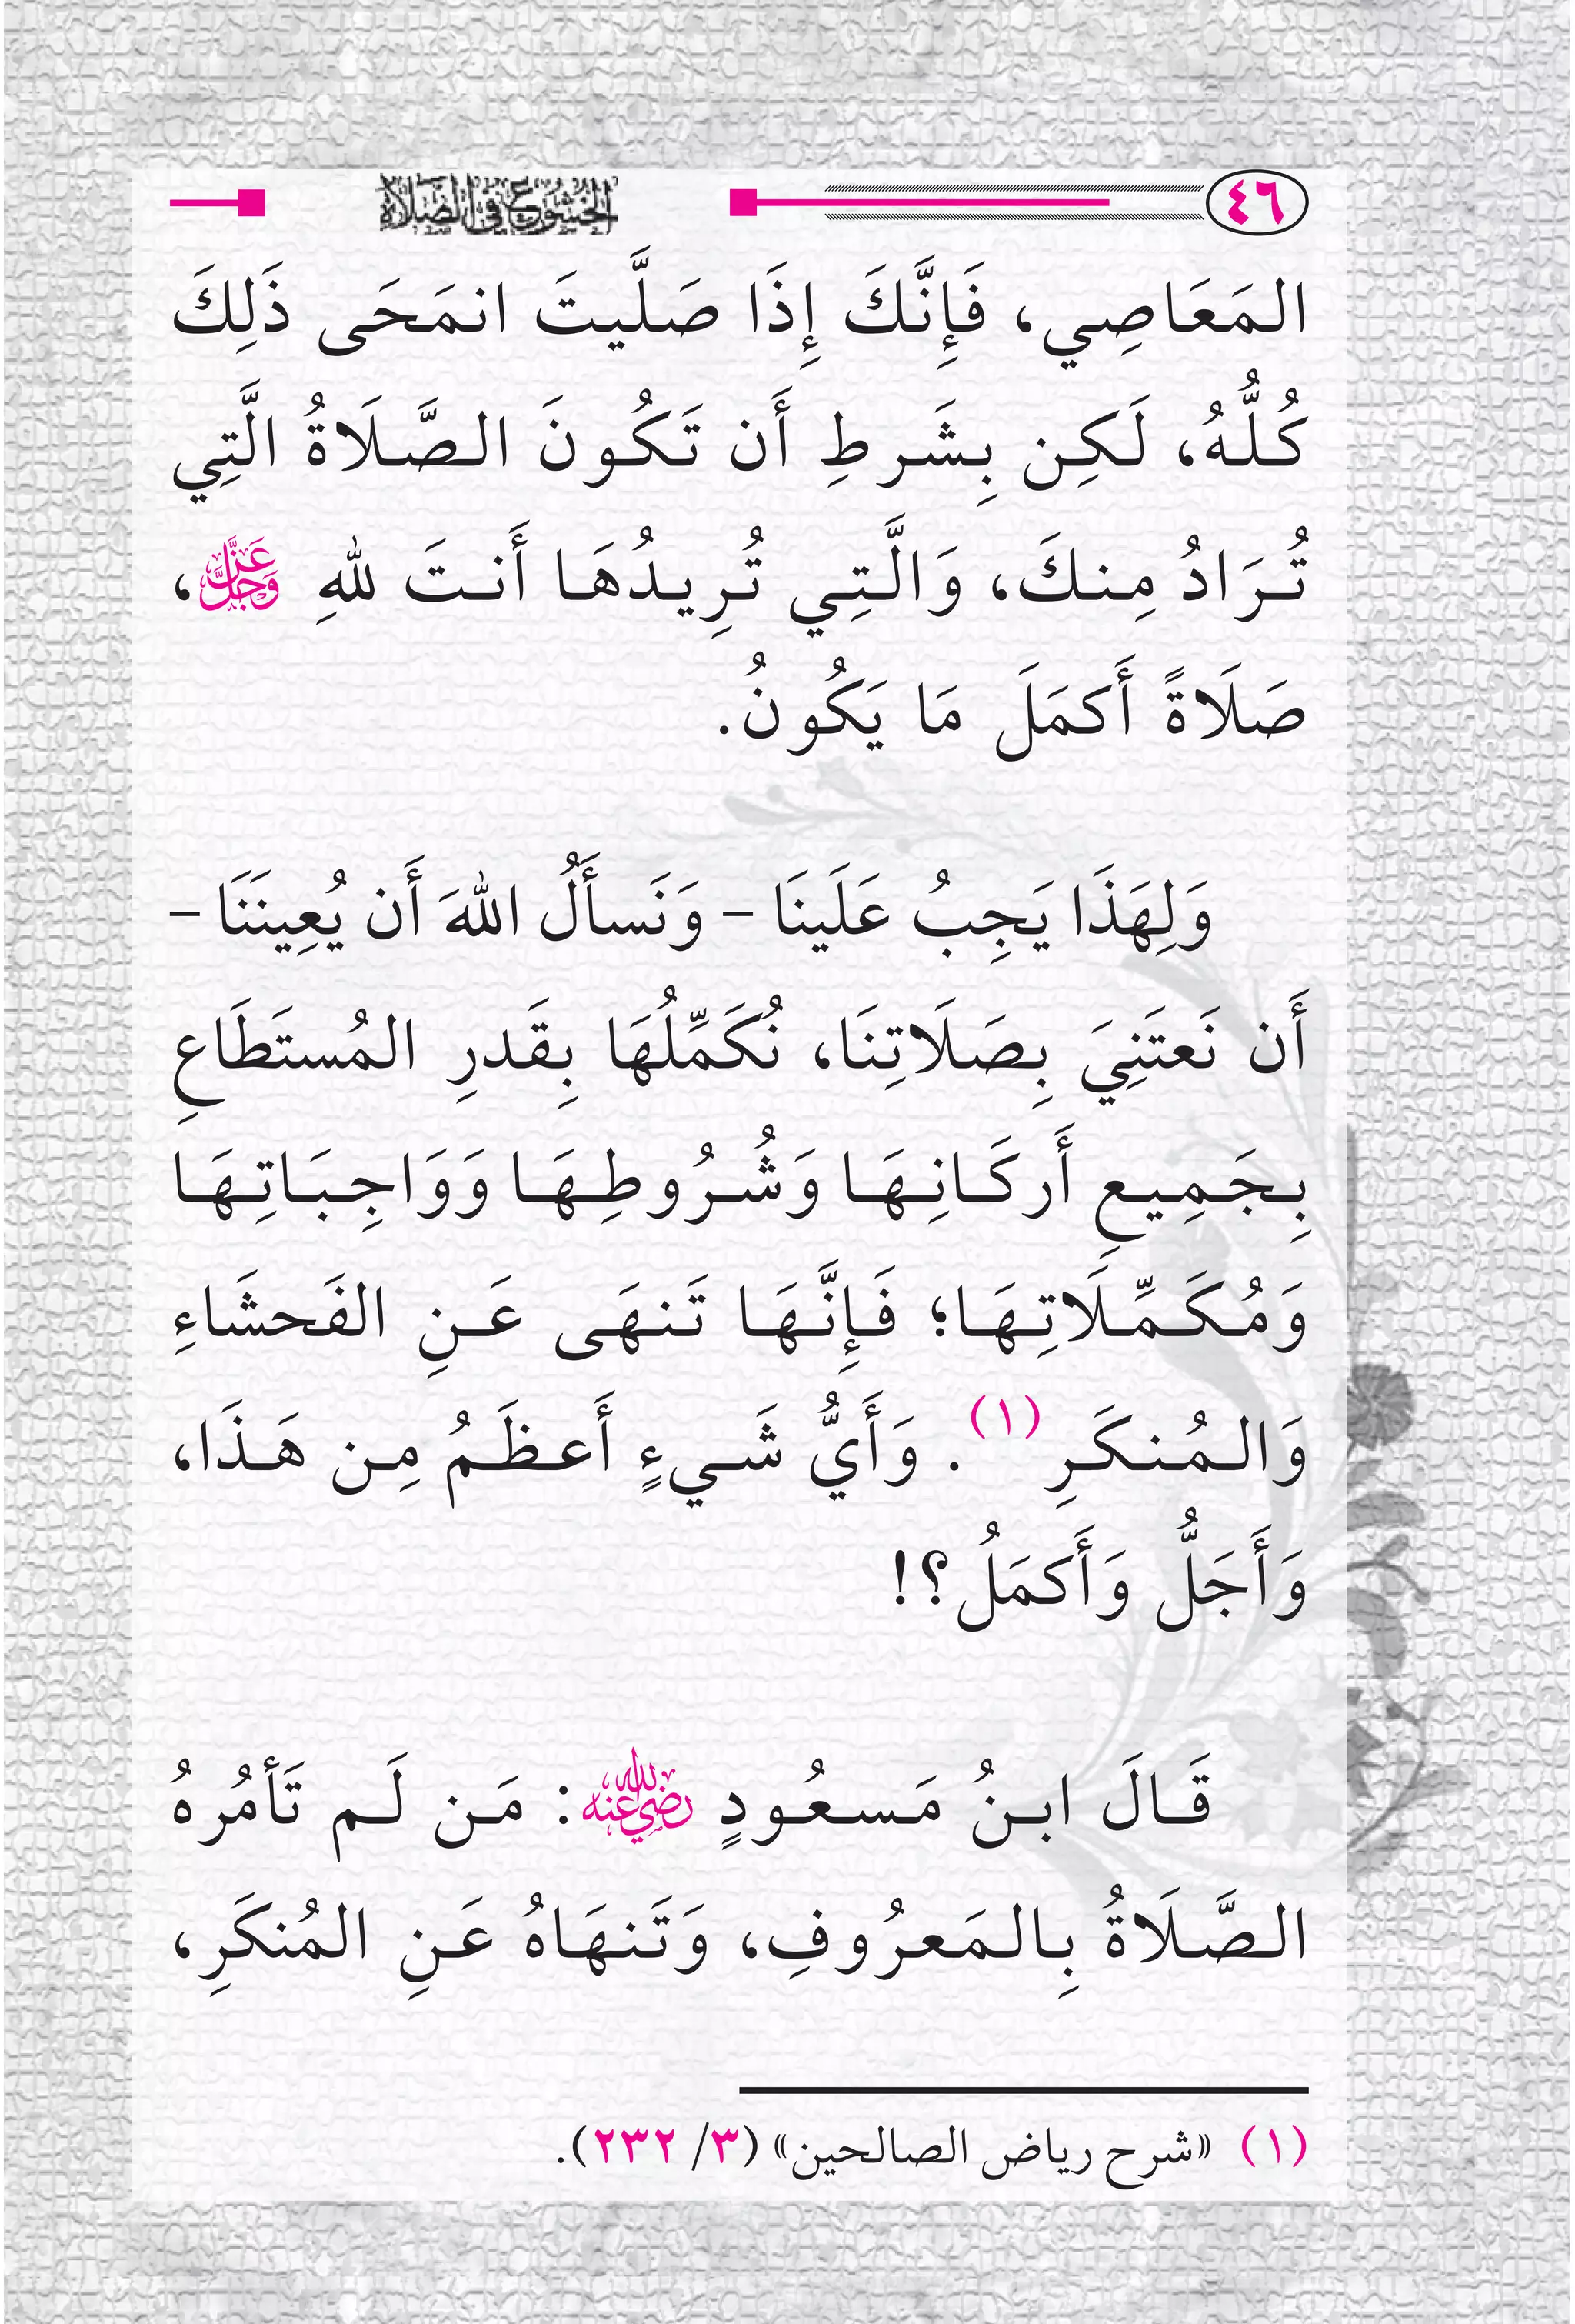 ٤٦ الخشوع في الصلاة
المَعَاصِي، فَإِنَّكَ إِذَا صَلَّيتَ انمَحَى ذَلِكَ
كُلُّهُ، لَكِن بِشَرطِ أَن تَكُونَ الصَّلَاةُ الَّتِي
تُرَادُ مِنكَ، وَالَّتِي تُرِيدُهَا أَنتَ للهِ عَزَّ وَجَلَّ،
صَلَاةً أَكمَلَ مَا يَكُونُ.
وَلِهَذَا يَجِبُ عَلَينَا – وَنَسأَلُ اللهَ أَن يُعِينَنَا –
أَن نَعتَنِيَ بِصَلَاتِنَا، نُكَمِّلُهَا بِقَدرِ المُستَطَاعِ
بِجَمِيعِ أَركَانِهَا وَشُرُوطِهَا وَوَاجِبَاتِهَا
وَمُكَمِّلَاتِهَا؛ فَإِنَّهَا تَنهَى عَنِ الفَحشَاءِ
وَالمُنكَرِ (١). وَأَيُّ شَيءٍ أَعظَمُ مِن هَذَا،
وَأَجَلُّ وَأَكمَلُ؟!
قَالَ ابنُ مَسعُودٍ رضي الله عنه: مَن لَم تَأمُرهُ
الصَّلَاةُ بِالمَعرُوفِ، وَتَنهَاهُ عَنِ المُنكَرِ،
(١) «شرح رياض الصالحين» (٣/ ٢٣٢).